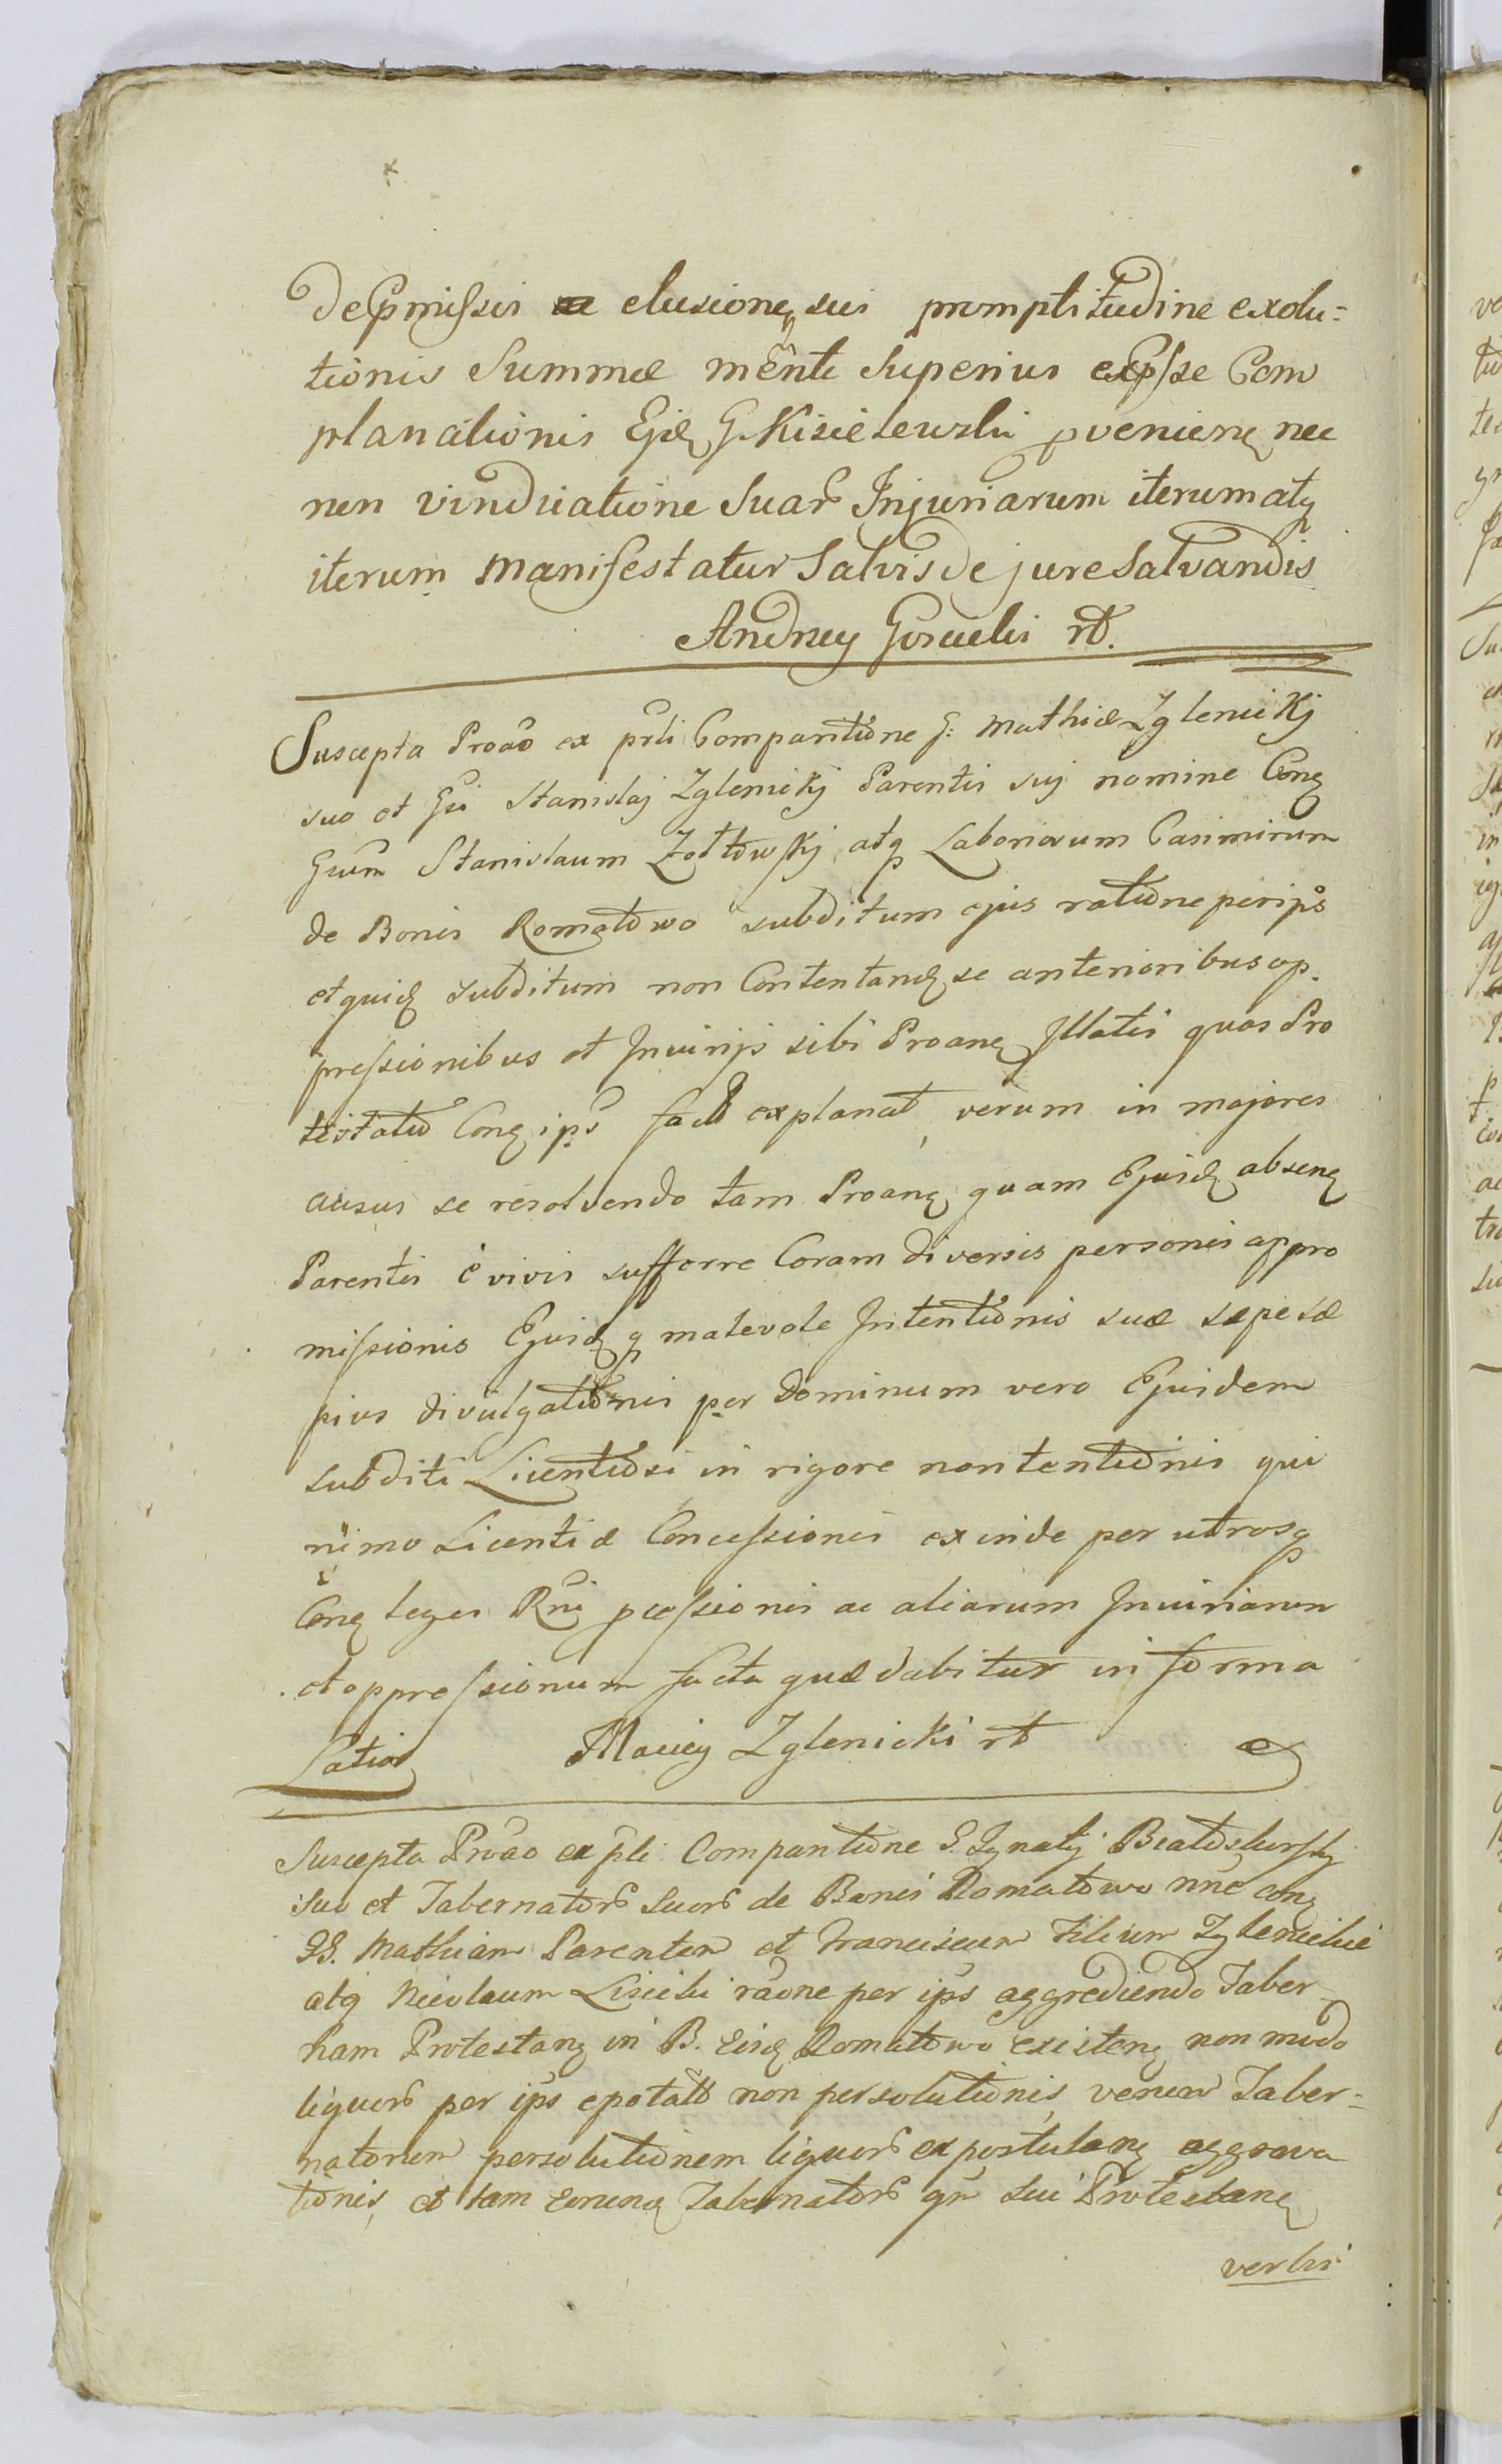 de pmissis elusione sui promptitudine exolu=
tionis Summæ mente Superius expsse Com
planationis Ejd G. Kisielewski pvenien nec
non vindicatione Suar Injuriarum iterum atq
iterum manifestatur Salvis de jure Salvandis
Andrzey Gorecki rt.
Suscepta Proao ex prti Comparitione G: Mathiæ Zglenickj
suo et Gsi Stanislaj Zglenickj Parentis suj nomine Con
Gsum Stanislaum Zołtowskj atq Laboriosum Casimirum
de Bonis Romatowo subditum ejus ratione per ips
et quid subditum non Contentand se anterioribus op
pressionibus et Injurijs sibi Proan Illatis quas Pro
testatio Con ips facta explanat, verum in majores
ausus se resolvendo tam Proan quam Ejusd absen
Parentis è vivis sufferre Coram diversis personis appro
missionis Ejusdq malevole Intentionis suæ sæpe sæ
pius divulgationis per Dominum vero Ejusdem
subditi Licentiosi in rigore non tentionis qui
nimo Licentiæ Concessionis exinde per utrosq
Con leges Rni pcessionis ac aliarum Injuriarum
et oppressionum facta quæ dabitur in forma
Latior Maciey Zglenicki rt
Suscepta Proao ex prti Comparitione G. Ignatij
suo et Tabernator suor de Bonis Romatowo nne con
GG. Mathiam Parentem et Franciscum Filium Zglenickie
atq Nicolaum Lisicki raone per ips aggrediendo Taber
nam Protestan in B. Eisd Romatowo existen non modo
liquor per ips epotat non persolutionis, verum Taber=
natorem persolutionem liquor expostulan aggrava
tionis, et tam eorund Tabernator qm sui Protestan
verbis